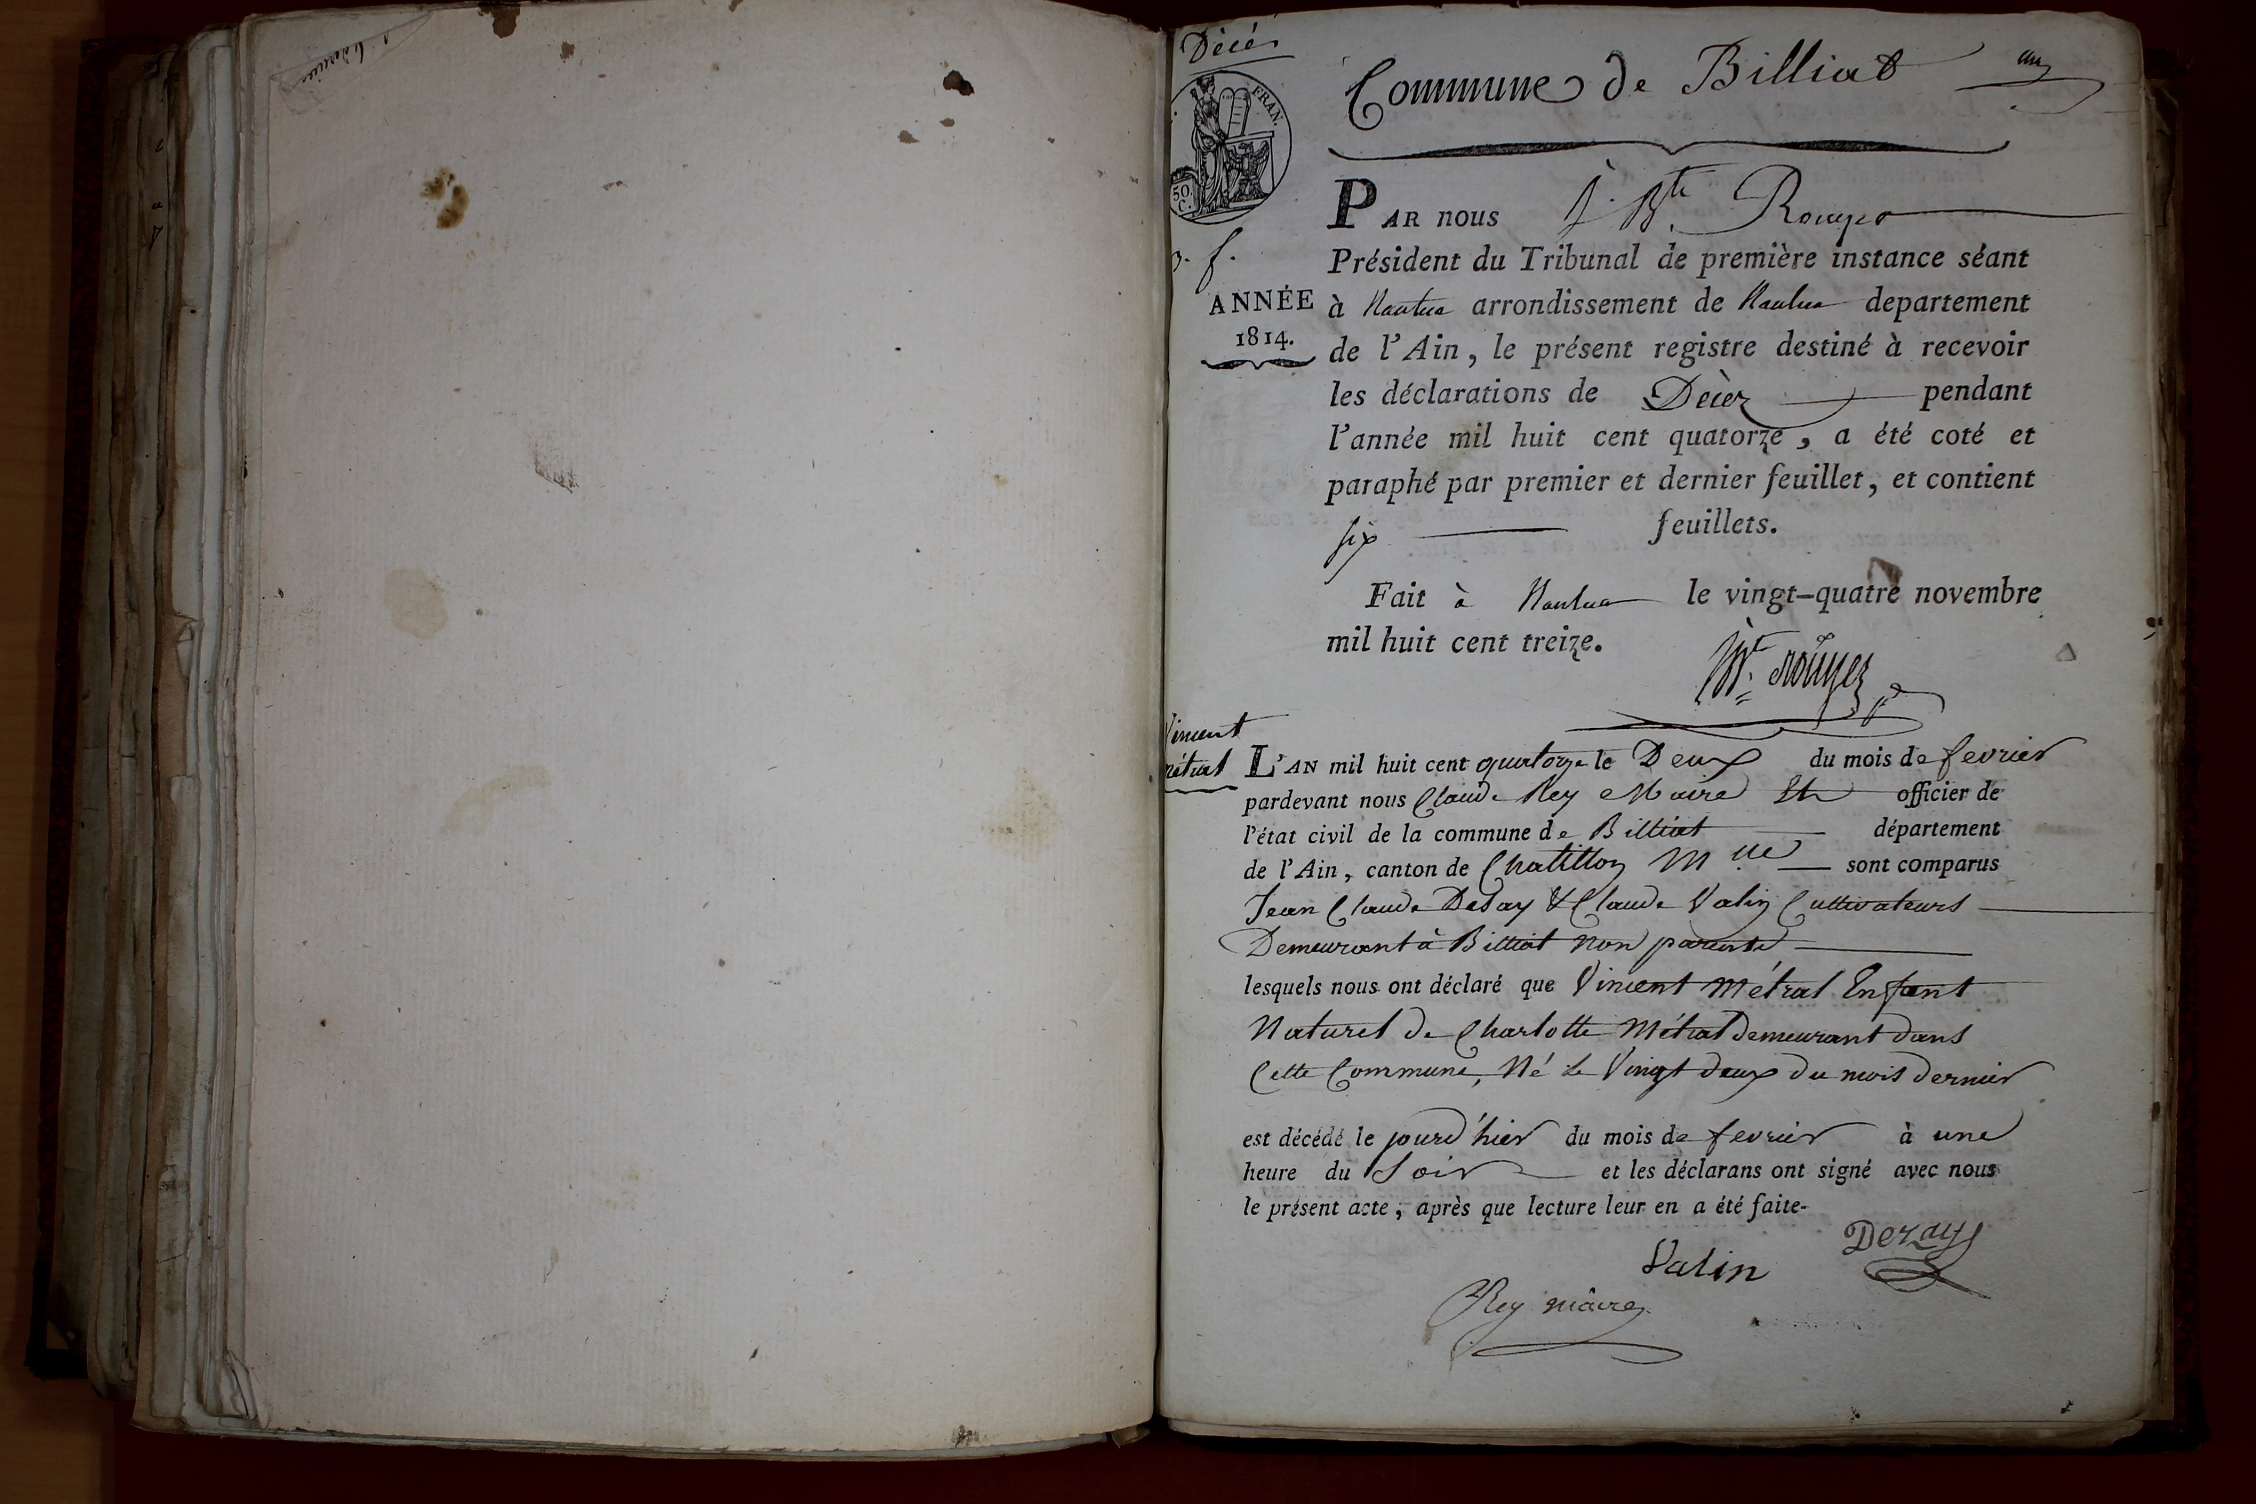 Décès
Commune de Billiat
FRAN.
50.
C.
PAR nous J. Bte Rouyer
Président du Tribunal de première instance séant
ANNÉE
1814.
à Nantua arrondissement de Nantua departement
de l'Ain, le présent registre destiné à recevoir
les déclarations de Décès pendant
l'année mil huit cent quatorze, a été coté et
paraphé par premier et dernier feuillet, et contient
six feuillets.
Fait à Nantua le vingt-quatre novembre
mil huit cent treize.
Bte Rouyer
Vincent
métral
L'AN mil huit cent quatorze le Deux du mois de fevrier
pardevant nous Claude Rey Maire officier de
l'état civil de la commune de Billiat département
de l'Ain, canton de Chatillon sont comparus
Jean Claude Desay & Claude Valin Cultivateurs
Demeurant à Billiat non parents
lesquels nous ont déclaré que Vincent Métral Enfant
Naturel de Charlotte Métral demeurant dans
Cette Commune, Né le Vingt deux du mois dernier
est décédé le jourd'hier du mois de fevrier à une
heure du Soir et les déclarans ont signé avec nous
le présent acte, après que lecture leur en a été faite.
Dezay
Valin
Rey maire